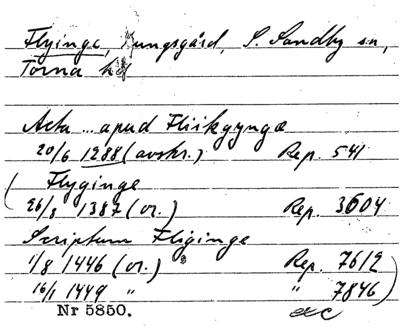 Flyinge, Kungsgård, S. Sandby sn,
Torna hd
Acta ... apud Fliikgyngæ
20/6 1288 (avskr.) Rep. 541
( Flyginge
26/8 1387 (or.) Rep. 3604
Scriptum Fliginge
1/8 1446 (or.) Rep. 7612
16/1 1449 " " 7846 )
Nr 5850. etc